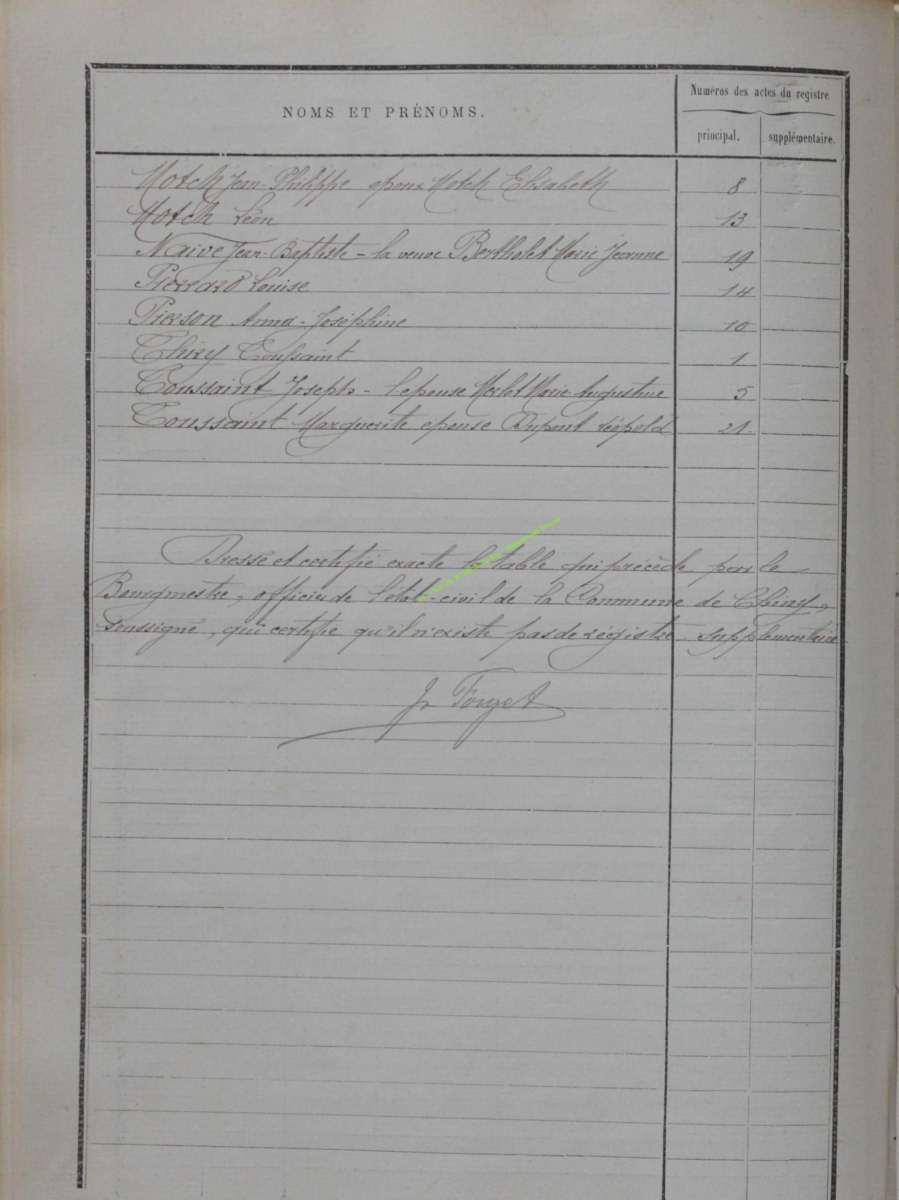 NOMS ET PRÉNOMS.
Numéros des actes du registre
principal.
supplémentaire.
Motch Jean-Philippe époux Motch Elisabeth 8
Motch Léon 13
Naive Jean-Baptiste - la veuve Bertholet Marie Jeanne 19
Pierrard Louise 14
Pierson Anna-Joséphine 10
Thiry Toussaint 1
Toussaint Joseph - l'épouse Merlot Marie Augustine 5
Toussaint Marguerite épouse Dupont Léopold 21
Dressé et certifié exacte la table qui précède par le
Bourgmestre, officier de l'état-civil de la Commune de Chiny,
soussigné, qui certifie qu'il n'existe pas de régistre supplémentaire.
Forget